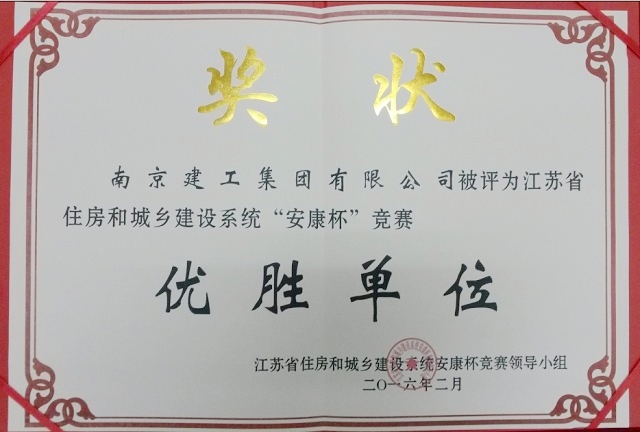 奖 状
南京建工集团有限公司被评为江苏省
住房和城乡建设系统“安康杯”竞赛
优胜单位
江苏省住房和城乡建设系统安康杯竞赛领导小组
二〇一六年二月